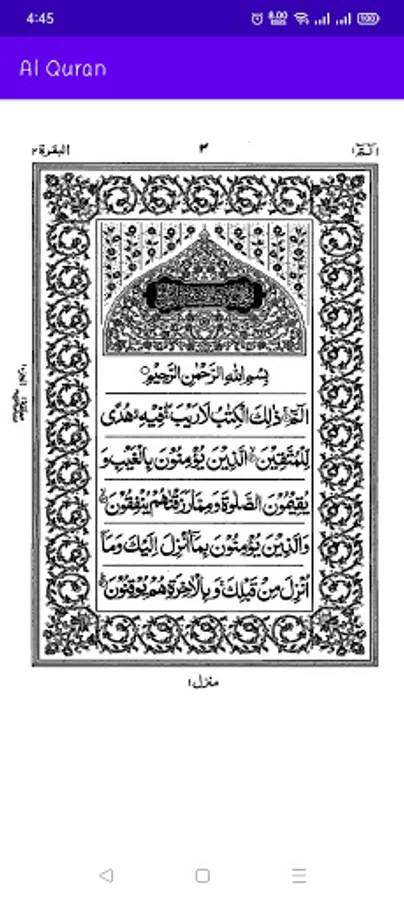 4:45
8.00
KB/S
100
Al Quran
البقرة ٢
٢
الٓمّٓ ١
بِسْمِ اللهِ الرَّحْمٰنِ الرَّحِيْمِ
الٓمّٓ ذٰلِكَ الْكِتٰبُ لَا رَيْبَ فِيْهِ هُدًى
لِّلْمُتَّقِيْنَ الَّذِيْنَ يُؤْمِنُوْنَ بِالْغَيْبِ وَ
يُقِيْمُوْنَ الصَّلٰوةَ وَمِمَّا رَزَقْنٰهُمْ يُنْفِقُوْنَ
وَالَّذِيْنَ يُؤْمِنُوْنَ بِمَآ اُنْزِلَ اِلَيْكَ وَمَآ
اُنْزِلَ مِنْ قَبْلِكَ وَبِالْاٰخِرَةِ هُمْ يُوْقِنُوْنَ
منزل ١